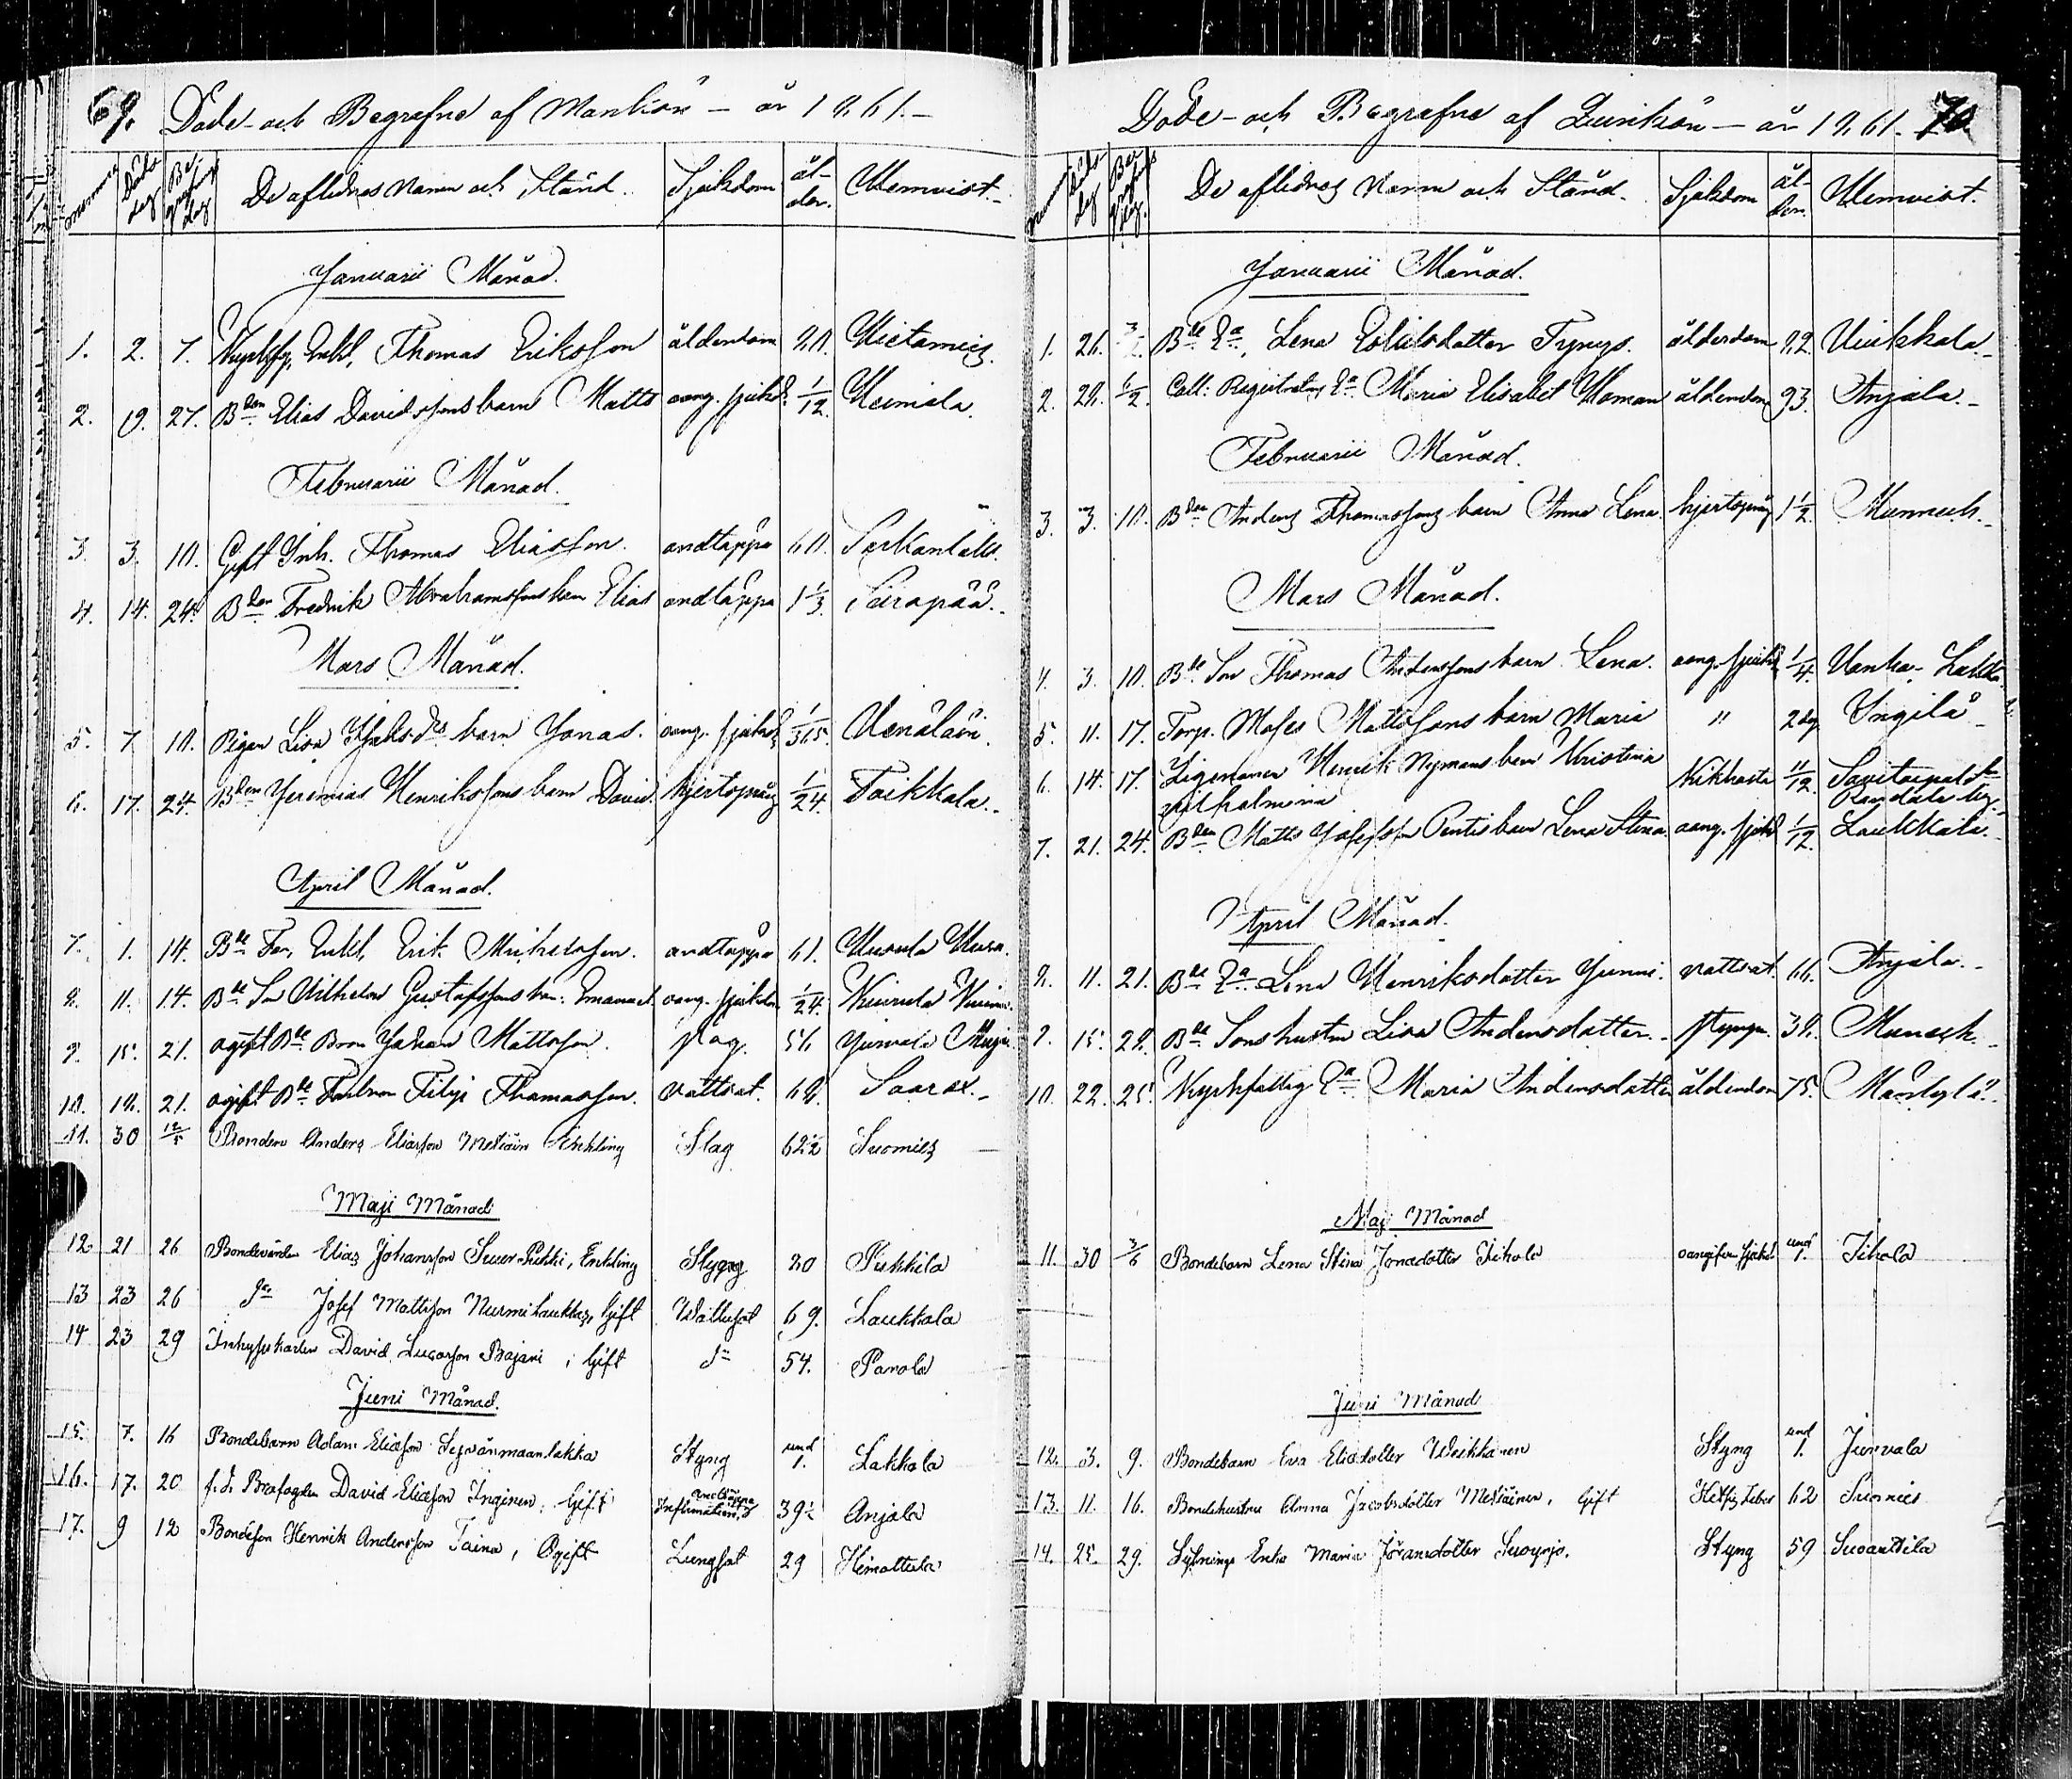 69. Döde- och Begrafne af Mankön - år 1861.-
Nummer Döds dag Begrafnings dag De aflednas Namn och Stånd. Sjukdom ål-der. Hemvist.
Januarii Månad.
1. 2. 7. Enkl. Thomas Eriksson ålderdom 80.
2. 9. 27. Bden Elias Davidssons barn Matts oang. sjukd. 1/12 Heimala.
Februarii Månad.
3. 3. 10. Gift Inh. Thomas Eliasson. andtäppa 60.
4. 14. 24. Bden Fredrik Abrahamssons barn Elias andtäppa 1 1/3 Siirapää.
Mars Månad.
5. 7 10. Pigan Lisa barn Jonas. oang. sjukd. 1/365 Venäläin.
6. 17. 24. Bden Jeremias Henrikssons barn David. hjertsprång 1/24. Taikkala.
April Månad.
7. 1. 14. Bde Far, Enkl. Erik Michelsson. andtäppa 61. Mursula
8. 11. 14. Bde Son Wilhelm Gustafssons barn Emanuel oang. sjukdom 1/24.
9. 15. 21. ogift Bde Bror Johan Mattsson. slag. 56 Junvala
10. 18. 21. ogift Bde Filip Thomasson. vattsot. 68. Saarax.
11. 30 12/5 Bonden Anders Eliasson Metiäin Enkling Slag 62 1/2 Suomies
Maji Månad
12 21 26 Elias Johansson Suur Pukki, Enkling Styng 80 Pukkila
13 23 26 Do Josef Mattsson Nurmilaukkas, Gift Wattusot 69. Laukkala
14 23 29 David Lucasson Brajari, Gift Do 54. Parola
Juni Månad.
15. 7. 16 Bondebarn Adam Eliasson Styng und 1. Lakkala
16. 17. 20 f.d. Brofogden David Eliasson Inginen, Gift andtäppa Inflamation 39 1/2 Anjala
17. 9 12 Bondeson Henrik Andersson Taina, Ogift Lungsot 29 Himottula
Döde- och Begrafne af Quinkön - år 1861. 70.
Nummer Döds dag Begrafnings dag. De aflednas Namn och Stånd. Sjukdom ål-der. Hemvist.
Januarii Månad.
1. 26. Bde Ea, Lena ålderdom 82. Uiikkala
2. 28. Coll: Registrators Ea Maria Elisabet Homan ålderdom 93. Anjala.
Februarii Månad.
3. 3. 10. Bden Anders Thomassons barn Anna Lena. hjertsprång 1 1/2 Mummeh.
Mars Månad.
4. 3. 10. Bde Son Thomas Anderssons barn Lena. oang. sjukd. 1/4. Vanha-Lakka.
5. 11. 17. Torp. Moses Mattssons barn Maria " 2 dg Ingilä
6. 14. 17. Zigenaren Henrik Nymans barn Kristina Wilhelmina Kikhosta 11/12 Savitaipale
7. 21. 24. Bden Matts Josefsson Pentis barn Lena Stina oang. sjukd. 1/12. Laukkala.
April Månad.
8. 11. 21. Bde Ea Lena Henriksdotter Junni. vattsot. 66. Anjala.
9. 15. 28. Bde Sons hustru Lisa Andersdotter. styng. 38. Munach.
10. 22. 25. Kyrkfattig Ea Maria Andersdotter ålderdom 75. Mäntylä.
Maj Månad
11. 30 3/6 Bondebarn Lena Stina Jonasdotter Tihola oangifven sjukd. und 1. Tihola
Juni Månad
12. 3. 9. Bondebarn Eva Eliedotter Weikkainen Styng und 1. Junvala
13. 11. 16. Bondehustru Anna Jacobsdotter Metiäinen, Gift Hetsig Feber 62 Suomies
14. 25. 29. Sytnings Enka Maria Göransdotter Suoyrjö. Styng 59 Suoanttila